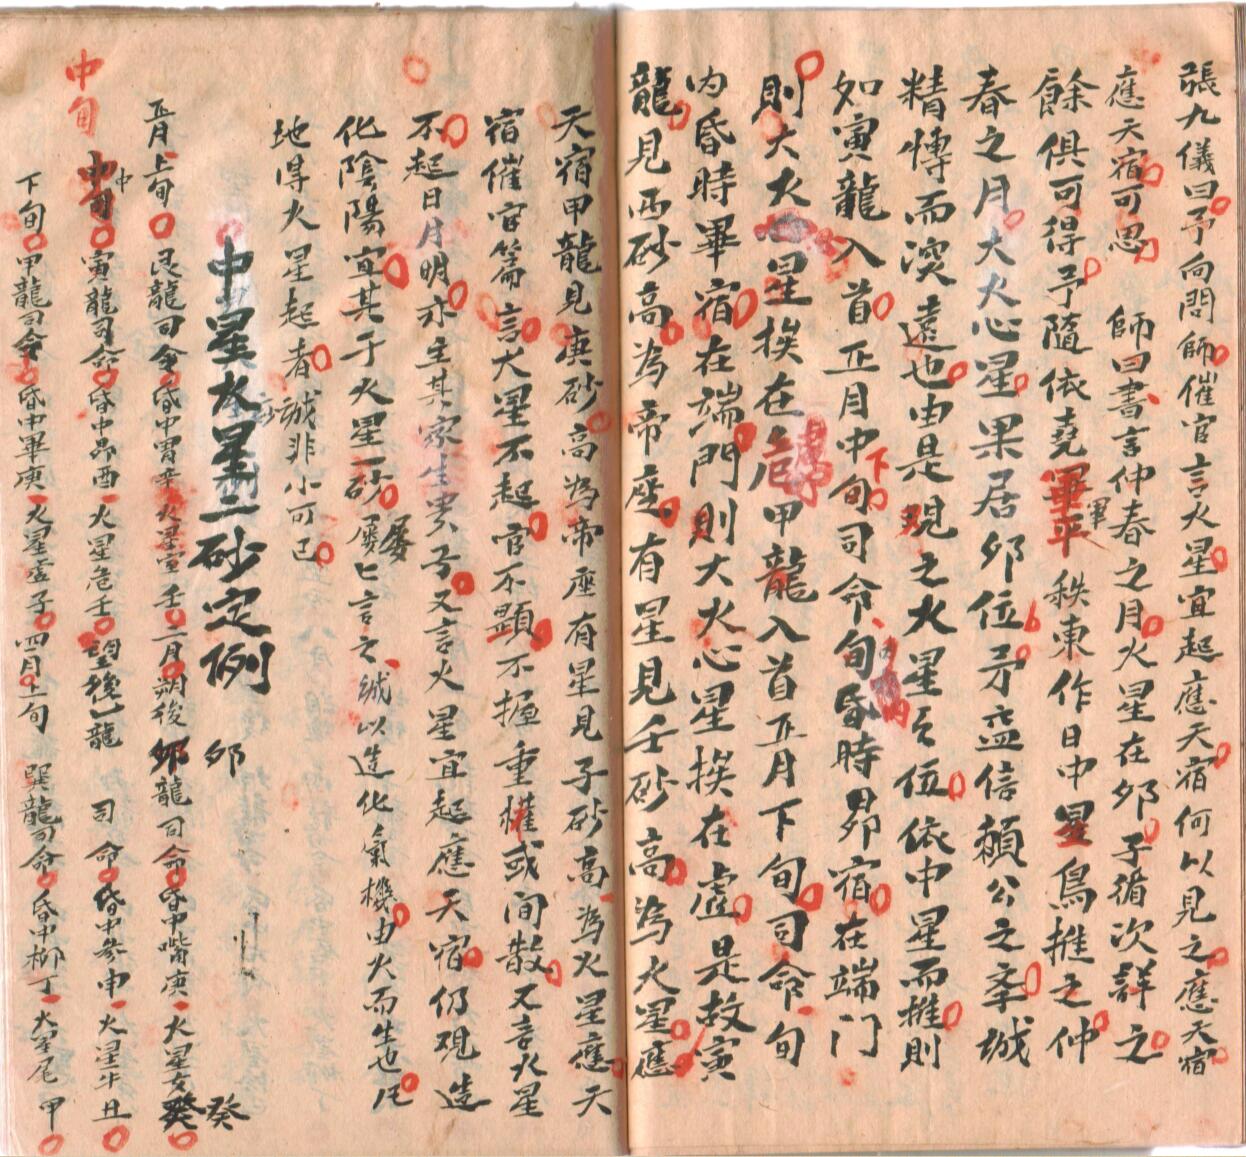 張九儀曰予向問師催官言火星宜起應天宿何以見之應天宿
應天宿可思 師曰書言仲春之月火星在夘子循次詳之
餘俱可得予隨依堯畢平秩東作日中星鳥推之仲
春之月大火心星果居夘位予益信賴公之季城
精慱而深遠也由是現之火星之位依中星而推則
如寅龍入首正月中旬司令旬昏時昴宿在端門
則大火心星挨在危甲龍入首正月下旬司命旬
內昏時畢宿在端門則大火心星挨在虛是故寅
龍見酉砂高為帝座有星見壬砂高為火星應
天宿甲龍見庚砂高為帝座有星見子砂高為火星應天
宿催官篇言火星不起官不顯不握重權或间散又言火星
不起日月明亦主其家生贵子又言火星宜起應天宿仍观造
化陰陽宜其于火星一砂屡匕言之誠以造化氣機由火而生也凡
地得火星起者誠非小可已
中星火星二砂定例
正月上旬艮龍司令昏中胃辛火星室壬二月朔後夘龍司命昏中嘴庚火星女癸
中旬寅龍司命昏中昴酉火星危壬望後乙龍司命昏中參申火星牛丑
下旬甲龍司令昏中畢庚火星虛子四月上旬巽龍司命昏中柳丁火星尾甲